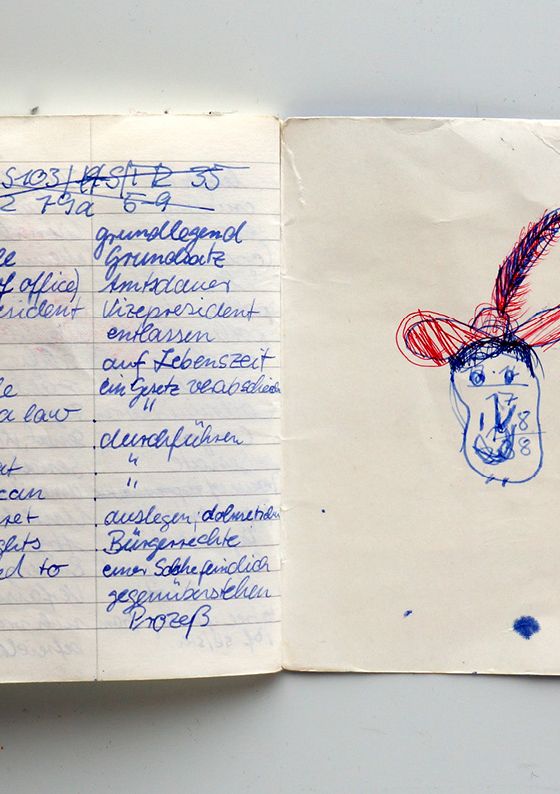 S 103 / S / 35
2 79a 6-9
grundlegend
Grundsatz
of office) Amtsdauer
Vizepresident
entlassen
auf Lebenszeit
ein Gesetz verabschieden
a law "
durchführen
"
can "
auslegen; dolmetschen
Bürgerrechte
ed to einer Sache feindlich
gegenüberstehen
Prozeß
8
8